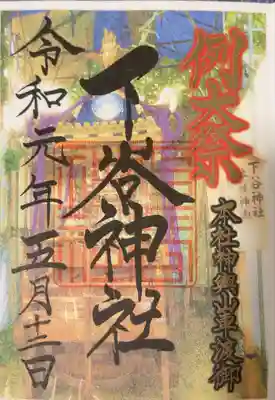 例大祭
本社神輿小車渡御
下谷神社
下谷神社
令和元年五月十二日